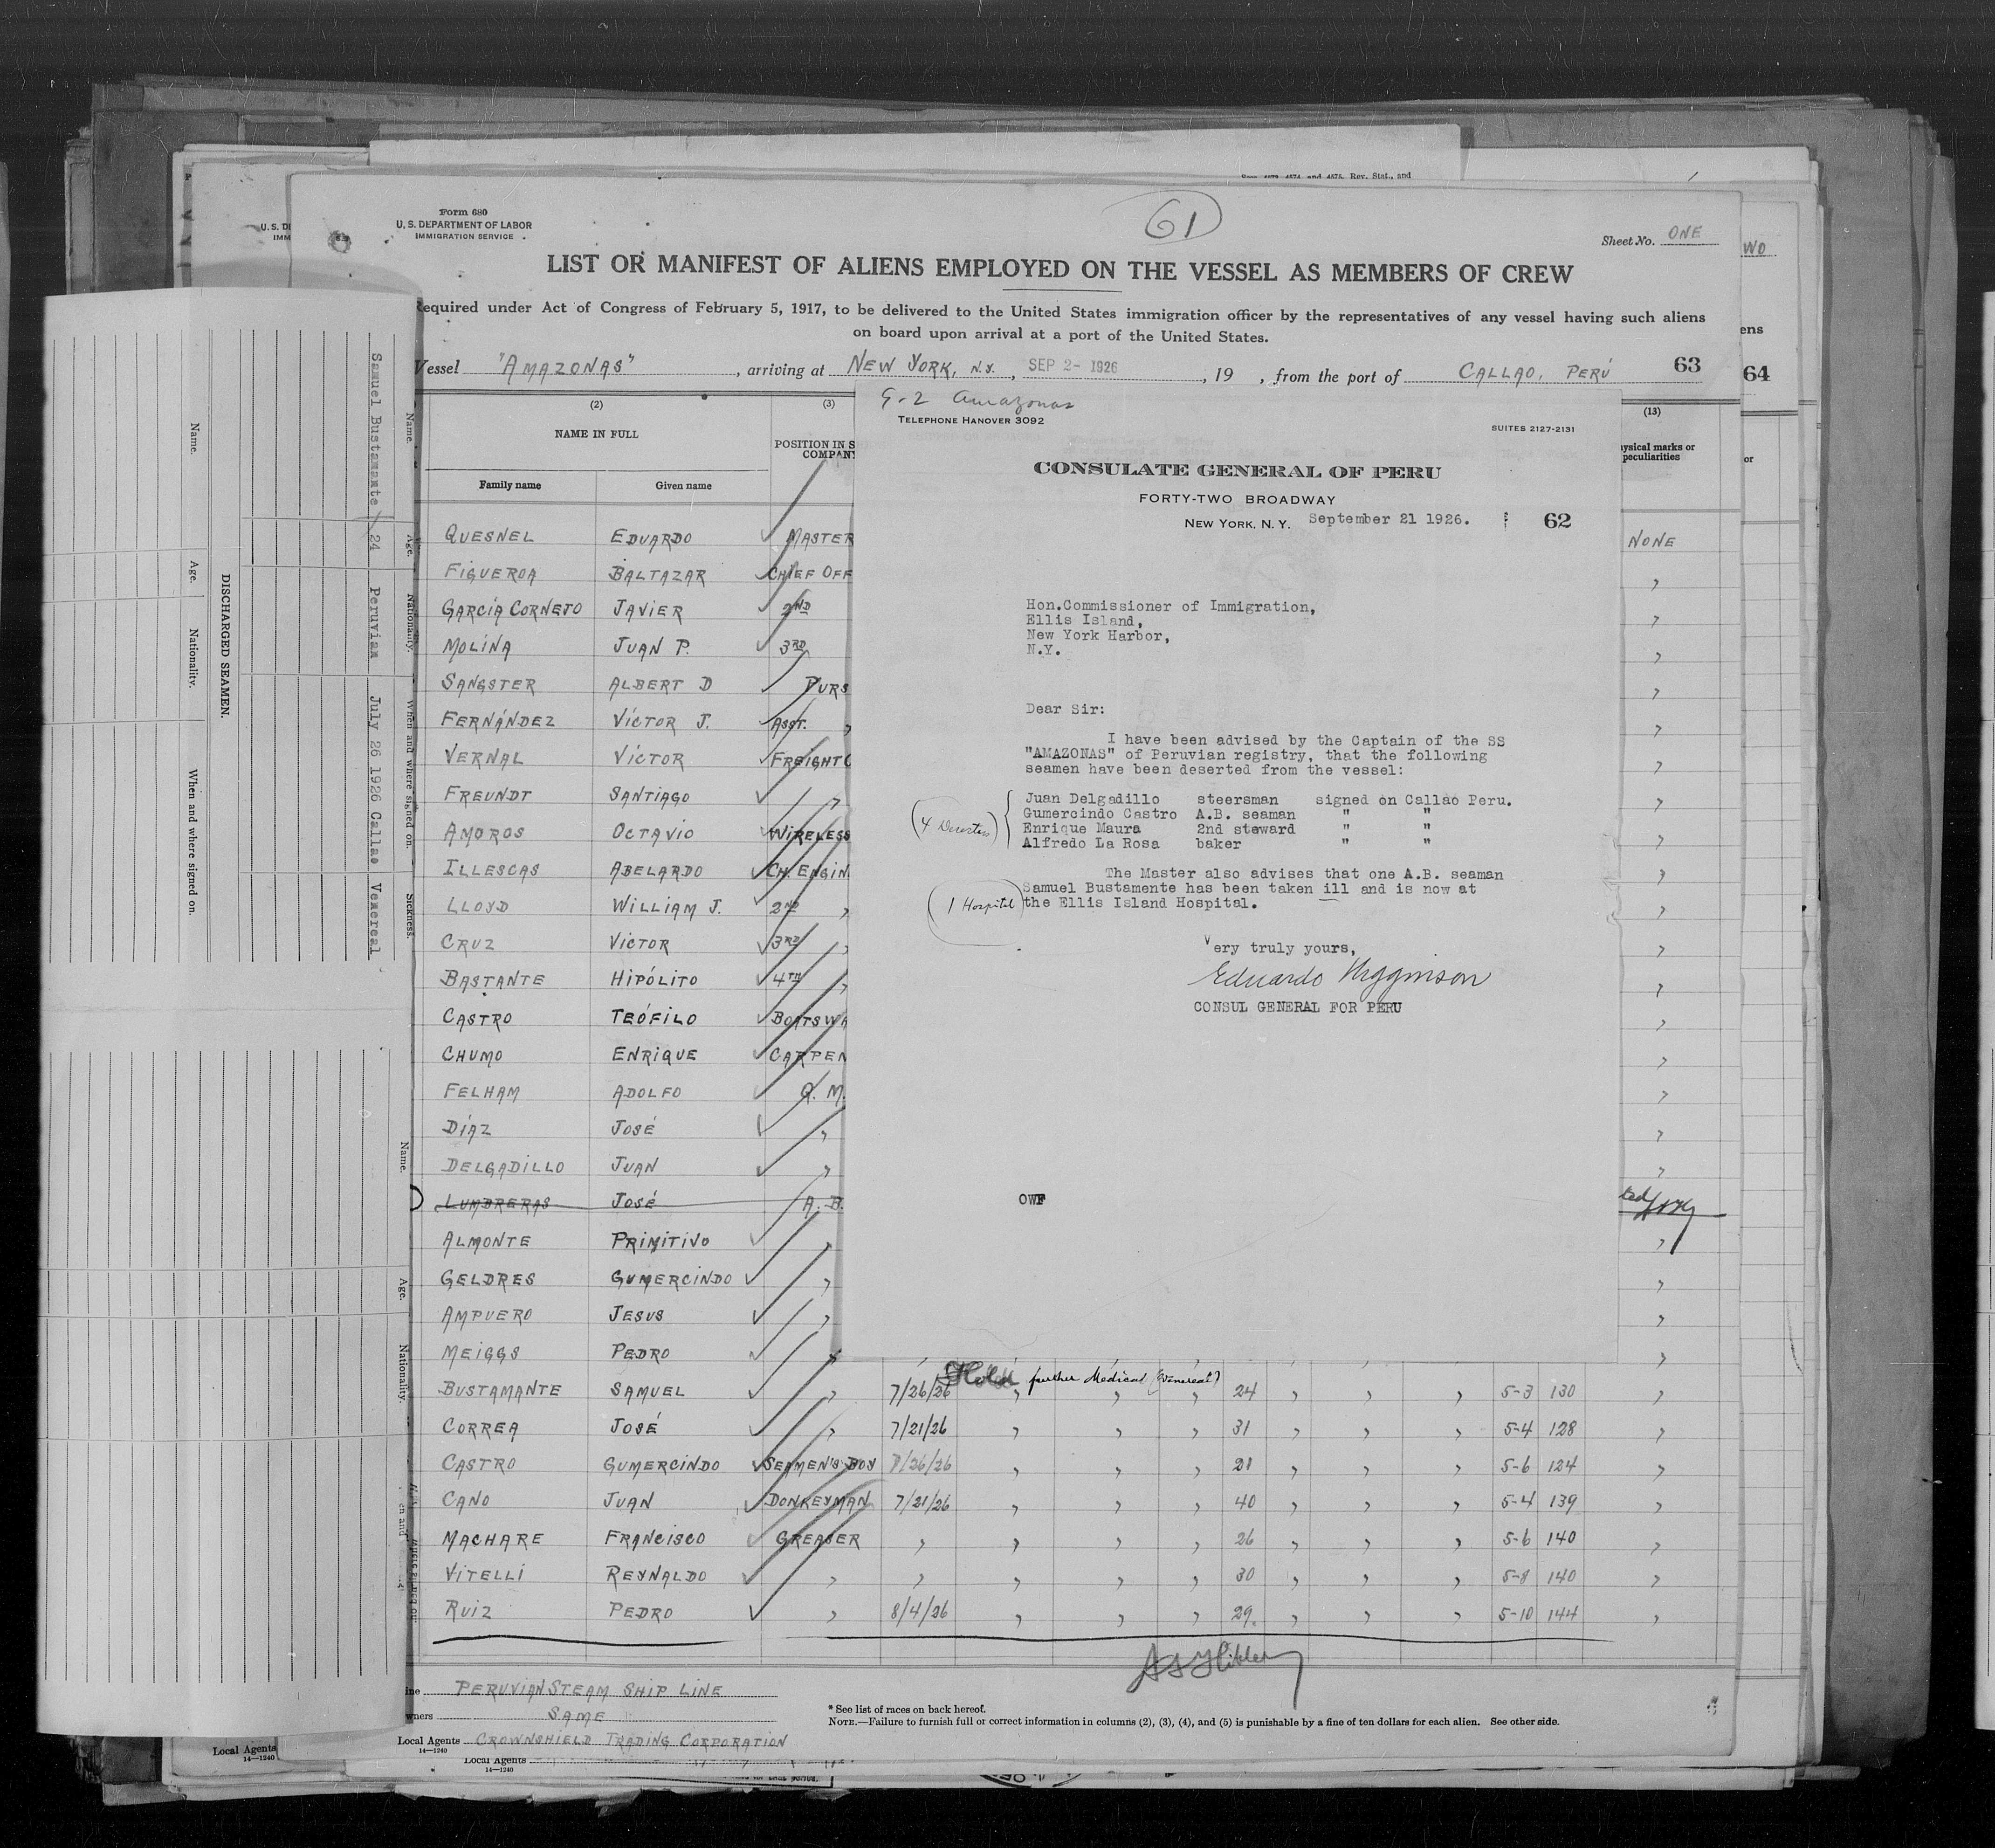 Form 680
U. S. DEPARTMENT OF LABOR
IMMIGRATION SERVICE
61
Sheet No. ONE
LIST OR MANIFEST OF ALIENS EMPLOYED ON THE VESSEL AS MEMBERS OF CREW
Required under Act of Congress of February 5, 1917, to be delivered to the United States immigration officer by the representatives of any vessel having such aliens
on board upon arrival at a port of the United States.
Vessel "AMAZONAS", arriving at NEW YORK, N.Y., SEP 2- 1926, 19 , from the port of CALLAO, PERÚ 63
64
(2) (3) (13)
NAME IN FULL
POSITION IN S
COMPAN
ysical marks or
peculiarities
Family name Given name
QUESNEL EDUARDO MASTER NONE
FIGUEROA BALTAZAR CHIEF OFF
GARCÍA CORNEJO JAVIER 2ND
MOLINA JUAN P. 3RD
SANGSTER ALBERT D PURS
FERNÁNDEZ VÍCTOR J. ASST.
VERNAL VÍCTOR FREIGHT C
FREUNDT SANTIAGO "
AMOROS OCTAVIO WIRELESS
ILLESCAS ABELARDO CH. ENGIN.
LLOYD WILLIAM J. 2ND "
CRUZ VICTOR 3RD "
BASTANTE HIPÓLITO 4TH "
CASTRO TEÓFILO BOATSWA
CHUMO ENRIQUE CARPEN
FELHAM ADOLFO Q. M.
DÍAZ JOSÉ "
DELGADILLO JUAN "
LUMBRERAS JOSÉ A. B.
ALMONTE PRIMITIVO "
GELDRES GUMERCINDO "
AMPUERO JESUS "
MEIGGS PEDRO "
Hold further Medical (Venereal)
BUSTAMANTE SAMUEL " 7/26/26 " " " 24 " " " 5-3 130 "
CORREA JOSÉ " 7/21/26 " " " 31 " " " 5-4 128 "
CASTRO GUMERCINDO SEAMEN'S BOY 7/26/26 " " " 21 " " " 5-6 124 "
CANO JUAN DONKEYMAN 7/21/26 " " " 40 " " " 5-4 139 "
MACHARE FRANCISCO GREASER " " " " 26 " " " 5-6 140 "
VITELLI REYNALDO " " " " " 30 " " " 5-8 140 "
RUIZ PEDRO " 8/4/26 " " " 29 " " " 5-10 144 "
PERUVIAN STEAM SHIP LINE
SAME
Local Agents CROWNSHIELD TRADING CORPORATION
14—1240
* See list of races on back hereof.
NOTE.—Failure to furnish full or correct information in columns (2), (3), (4), and (5) is punishable by a fine of ten dollars for each alien. See other side.
Local Agents
14—1240
Local Agents
14—1240
9-2 Amazonas
TELEPHONE HANOVER 3092
SUITES 2127-2131
CONSULATE GENERAL OF PERU
FORTY-TWO BROADWAY
NEW YORK, N. Y. September 21 1926. 62
Hon.Commissioner of Immigration,
Ellis Island,
New York Harbor,
N.Y.
Dear Sir:
I have been advised by the Captain of the SS
"AMAZONAS" of Peruvian registry, that the following
seamen have been deserted from the vessel:
Juan Delgadillo steersman signed on Callao Peru.
Gumercindo Castro A.B. seaman " "
Enrique Maura 2nd steward " "
Alfredo La Rosa baker " "
(4 Deserters)
The Master also advises that one A.B. seaman
Samuel Bustamente has been taken ill and is now at
the Ellis Island Hospital.
(1 Hospital)
Very truly yours,
Eduardo Higginson
CONSUL GENERAL FOR PERU
OWF
DISCHARGED SEAMEN.
Name. Age. Nationality. When and where signed on.
Name. Age. Nationality. When and where signed on. Sickness.
Samuel Bustamante 24 Peruvian July 26 1926 Callao Venereal
Name. Age. Nationality.